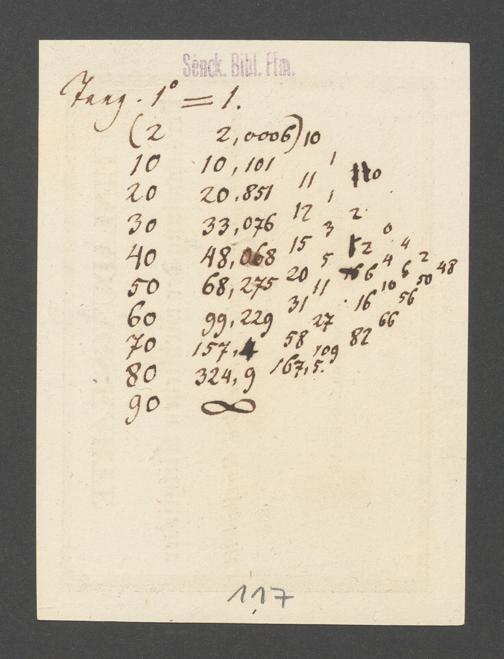 Senck. Bibl. Ffm.
Tang. 1° = 1.
(2 2,0006) 10
10 10,101 1
20 20.851 11 0
30 33,076 12 1 2
40 48,068 15 3 2 0
50 68,275 20 5 6 4 4
60 99,229 31 11 16 10 6 2
70 157,4 58 27 66 56 50 48
80 324,9 167,5. 109 82
90 ∞
117